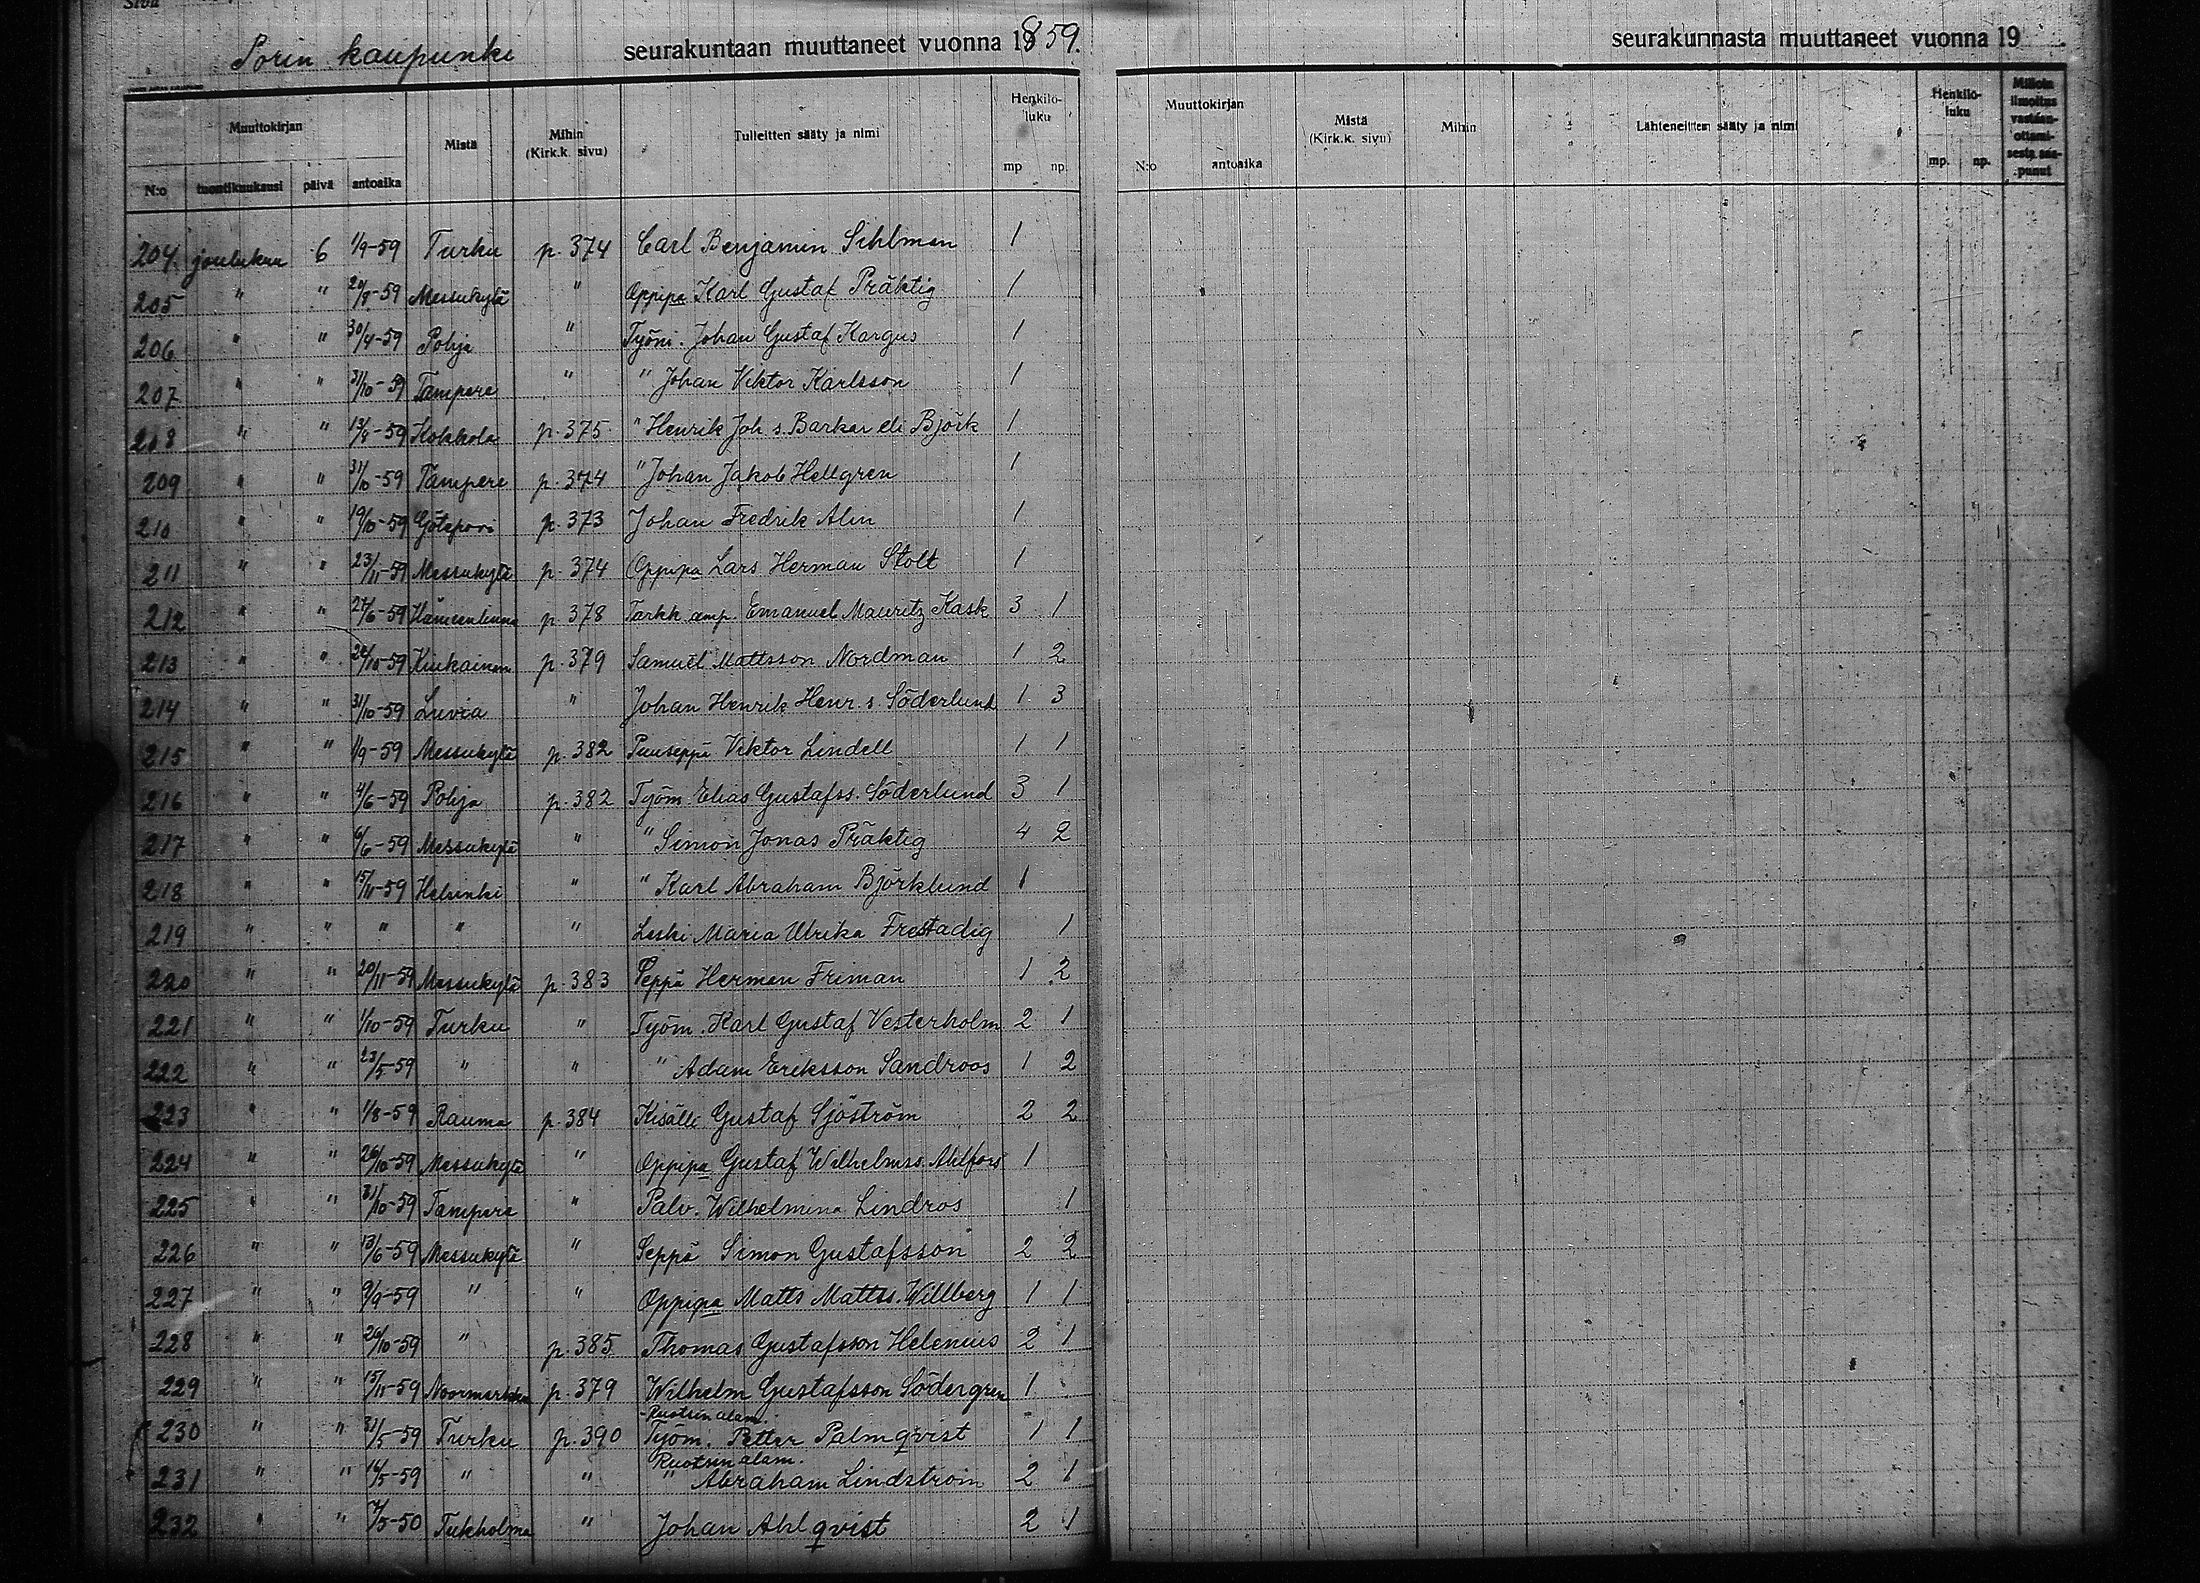 Sivu
Porin kaupunki seurakuntaan muuttaneet vuonna 1859.
Muuttokirjan Mistä Mihin (Kirk.k. sivu) Tulleitten sääty ja nimi Henkilö-luku
N:o tuontikuukausi päivä antoaika mp np.
204. joulukuu 6 1/9-59 Turku p. 374 Carl Benjamin Sihlman 1
205 " " 20/8-59 Messukylä " Oppipa Karl Gustaf Präktig 1
206 " " 30/4-59 Pohja " Työm. Johan Gustaf Kargus 1
207 " " 31/10-59 Tampere " " Johan Viktor Karlsson 1
208 " " 13/9-59 Kokkola p. 375 " Henrik Joh s. Barkar eli Björk 1
209 " " 31/10-59 Tampere p. 374 " Johan Jakob Hellgren 1
210 " " 19/10-59 Götepori p. 373 Johan Fredrik Alin 1
211 " " 23/11-59 Messukylä p. 374 Oppipa Lars Herman Stolt 1
212 " " 27/6-59 Hämeenlinna p. 378 Tarkk. amp. Emanuel Mauritz Kask 3 1
213 " " 24/10-59 Kiukainen p. 379 Samuel Mattsson Nordman 1 2
214 " " 31/10-59 Luvia " Johan Henrik Henr. s. Söderlund 1 3
215 " " 1/9-59 Messukylä p. 382 Puuseppä Viktor Lindell 1 1
216 " " 4/6-59 Pohja p. 382 Työm. Elias Gustafss. Söderlund 3 1
217 " " 6/6-59 Messukylä " " Simon Jonas Präktig 4 2
218 " " 15/11-59 Helsinki " " Karl Abraham Björklund 1
219 " " " " " Leski Maria Ulrika Frestadig 1
220 " " 20/11-59 Messukylä p. 383 Seppä Herman Friman 1 2
221 " " 1/10-59 Turku " Työm. Karl Gustaf Vesterholm 2 1
222 " " 23/5-59 " " " Adam Eriksson Sandroos 1 2
223 " " 1/8-59 Rauma p. 384 Kisälli Gustaf Sjöström 2 2
224 " " 26/10-59 Messukylä " Oppipa Gustaf Wilhelmss. Ahlfors 1
225 " " 31/10-59 Tampere " Palv. Wilhelmina Lindros 1
226 " " 13/6-59 Messukylä " Seppä Simon Gustafsson 2 2
227 " " 9/9-59 " " Oppipa Matts Mattss. Willberg 1 1
228 " " 26/10-59 " p. 385 Thomas Gustafsson Helenius 2 1
229 " " 15/11-59 Noormarkku p. 379 Wilhelm Gustafsson Södergren 1
Ruotsin alam.
230 " " 31/5-59 Turku p. 390 Työm. Petter Palmqvist 1 1
Ruotsin alam.
231 " " 16/5-59 " " " Abraham Lindström 2 1
232 " " 7/5-50 Tukholma " Johan Ahlqvist 2 1
seurakunnasta muuttaneet vuonna 19
Muuttokirjan Mistä (Kirk.k. sivu) Mihin Lähteneitten sääty ja nimi Henkilö-luku Milloin ilmoitus vastaan-ottami-sesta saa-punut
N:o antoaika mp. np.